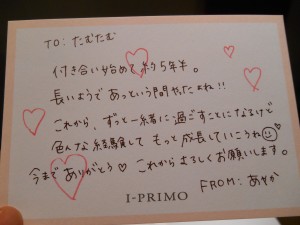 TO: たむたむ
付き合い始めて約5年半。
長いようであっという間やったよね!!
これから、ずっと一緒に過ごすことになるけど
色んな経験して もっと成長していこうね
今まで ありがとう♡ これからよろしくお願いします。
I-PRIMO
FROM: あやか